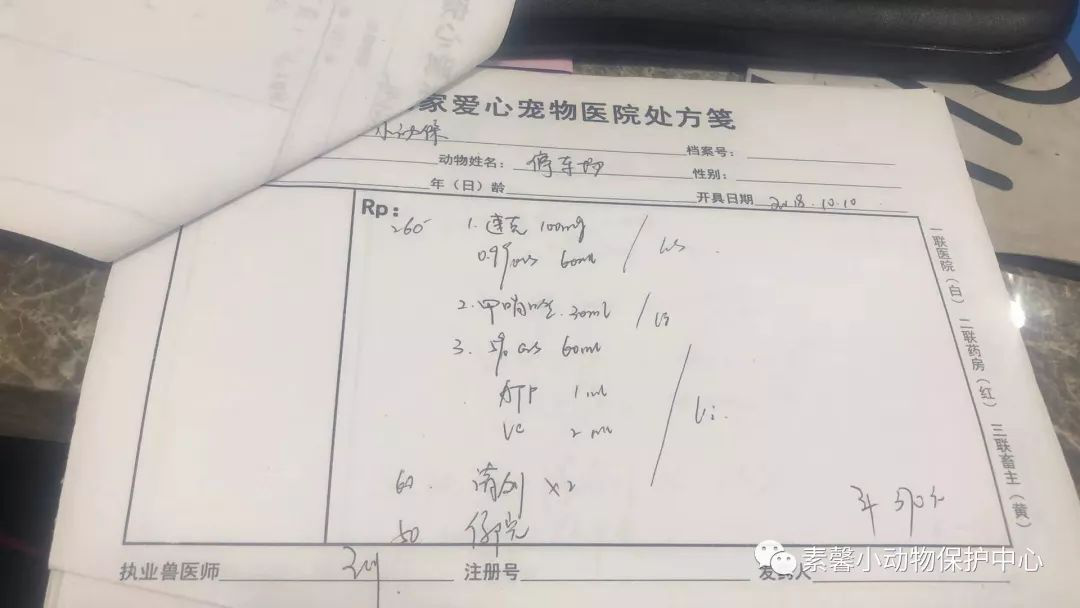 家爱心宠物医院处方笺
小动保 档案号:
动物姓名: 停车场 性别:
年（日）龄 开具日期 2018.10.10
Rp:
260 1. 速克 100mg
60ml
2. 甲硝唑 30ml
3. 5% GS 60ml
ATP 1ml
VC 2ml
60 ×2
50 住院
执业兽医师 注册号 发药人
一联医院（白） 二联药房（红） 三联畜主（黄）
素馨小动物保护中心